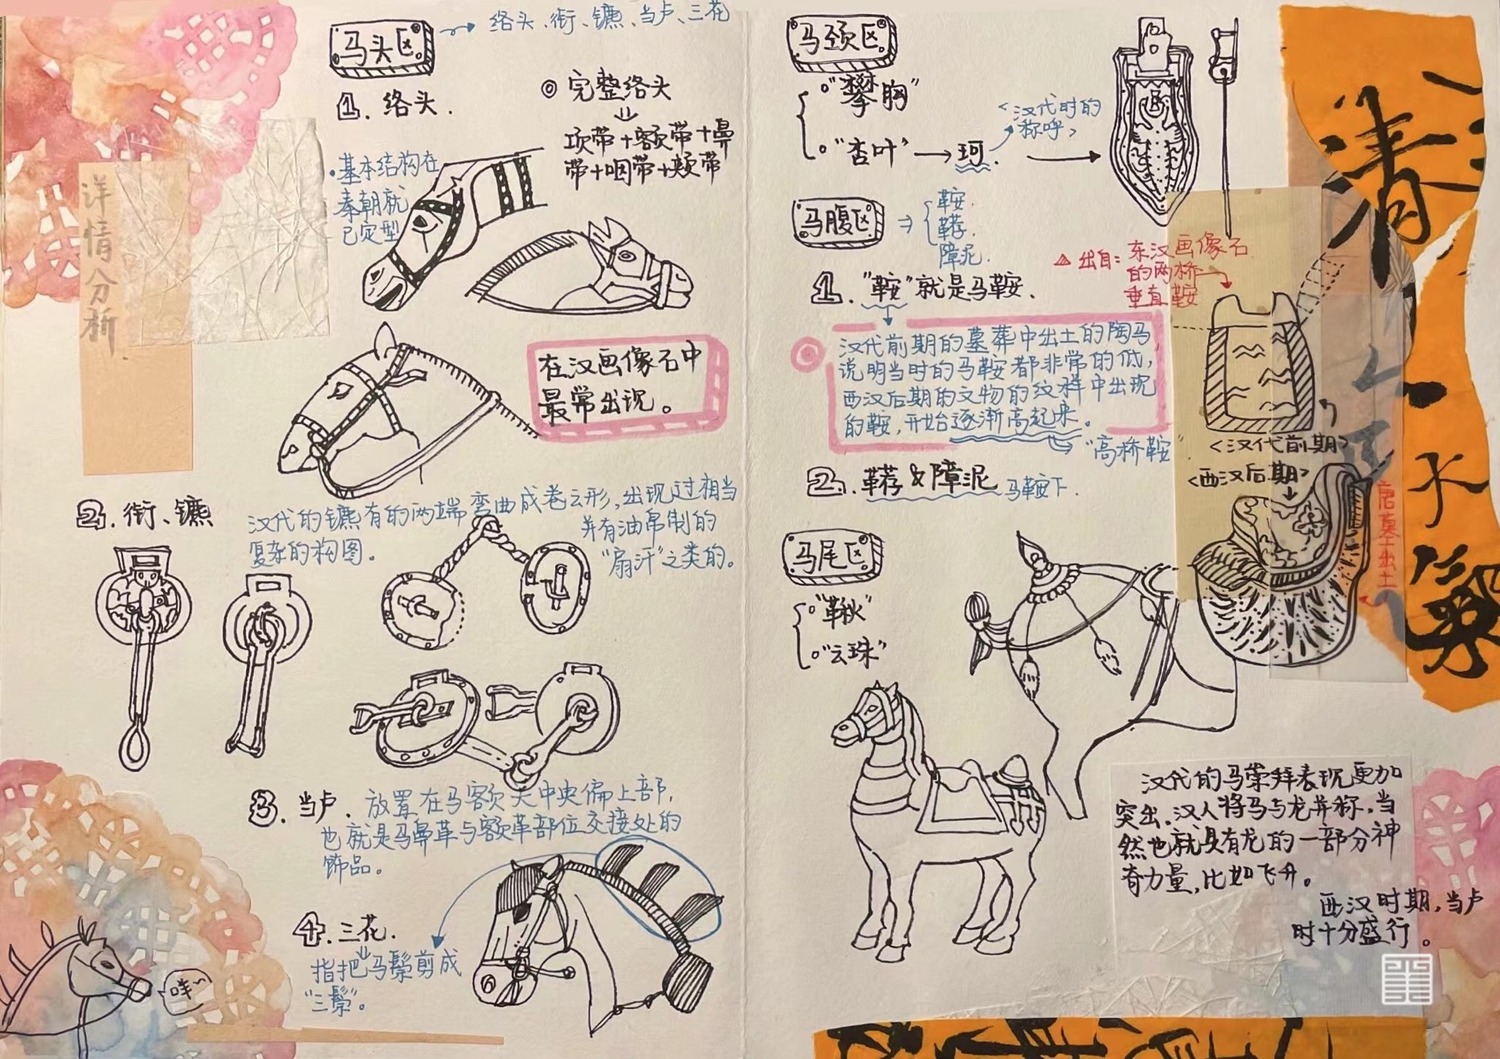 详情分析.
马头区
络头、衔、镳、当卢、三花
1. 络头.
◎ 完整络头
项带+额带+鼻
带+咽带+颊带
·基本结构在
秦朝就
已定型
在汉画像石中
最常出现。
2. 衔、镳
汉代的镳有的两端弯曲成卷云形,出现过相当
复杂的构图。
并有油帛制的
“扇汗”之类的。
3. 当卢. 放置在马额头中央偏上部,
也就是马鼻革与额革部位交接处的
饰品。
4. 三花.
指把马鬃剪成
“三鬃”。
咩~
马颈区
“攀胸”
“杏叶”→珂.
<汉代时的
称呼>
马腹区
鞍.
鞯.
障泥.
1. “鞍”就是马鞍.
△ 出自: 东汉画像石
的两桥
垂直鞍
汉代前期的墓葬中出土的陶马,
说明当时的马鞍都非常的低,
西汉后期的文物的纹样中出现
的鞍,开始逐渐高起来。
“高桥鞍”
<汉代前期>
<西汉后期>
唐墓出土
2. 鞯&障泥 马鞍下.
马尾区
“鞦”
“云珠”
汉代的马崇拜表现更加
突出.汉人将马与龙并称,当
然也就具有龙的一部分神
奇力量,比如飞升。
西汉时期,当卢
时十分盛行。
清